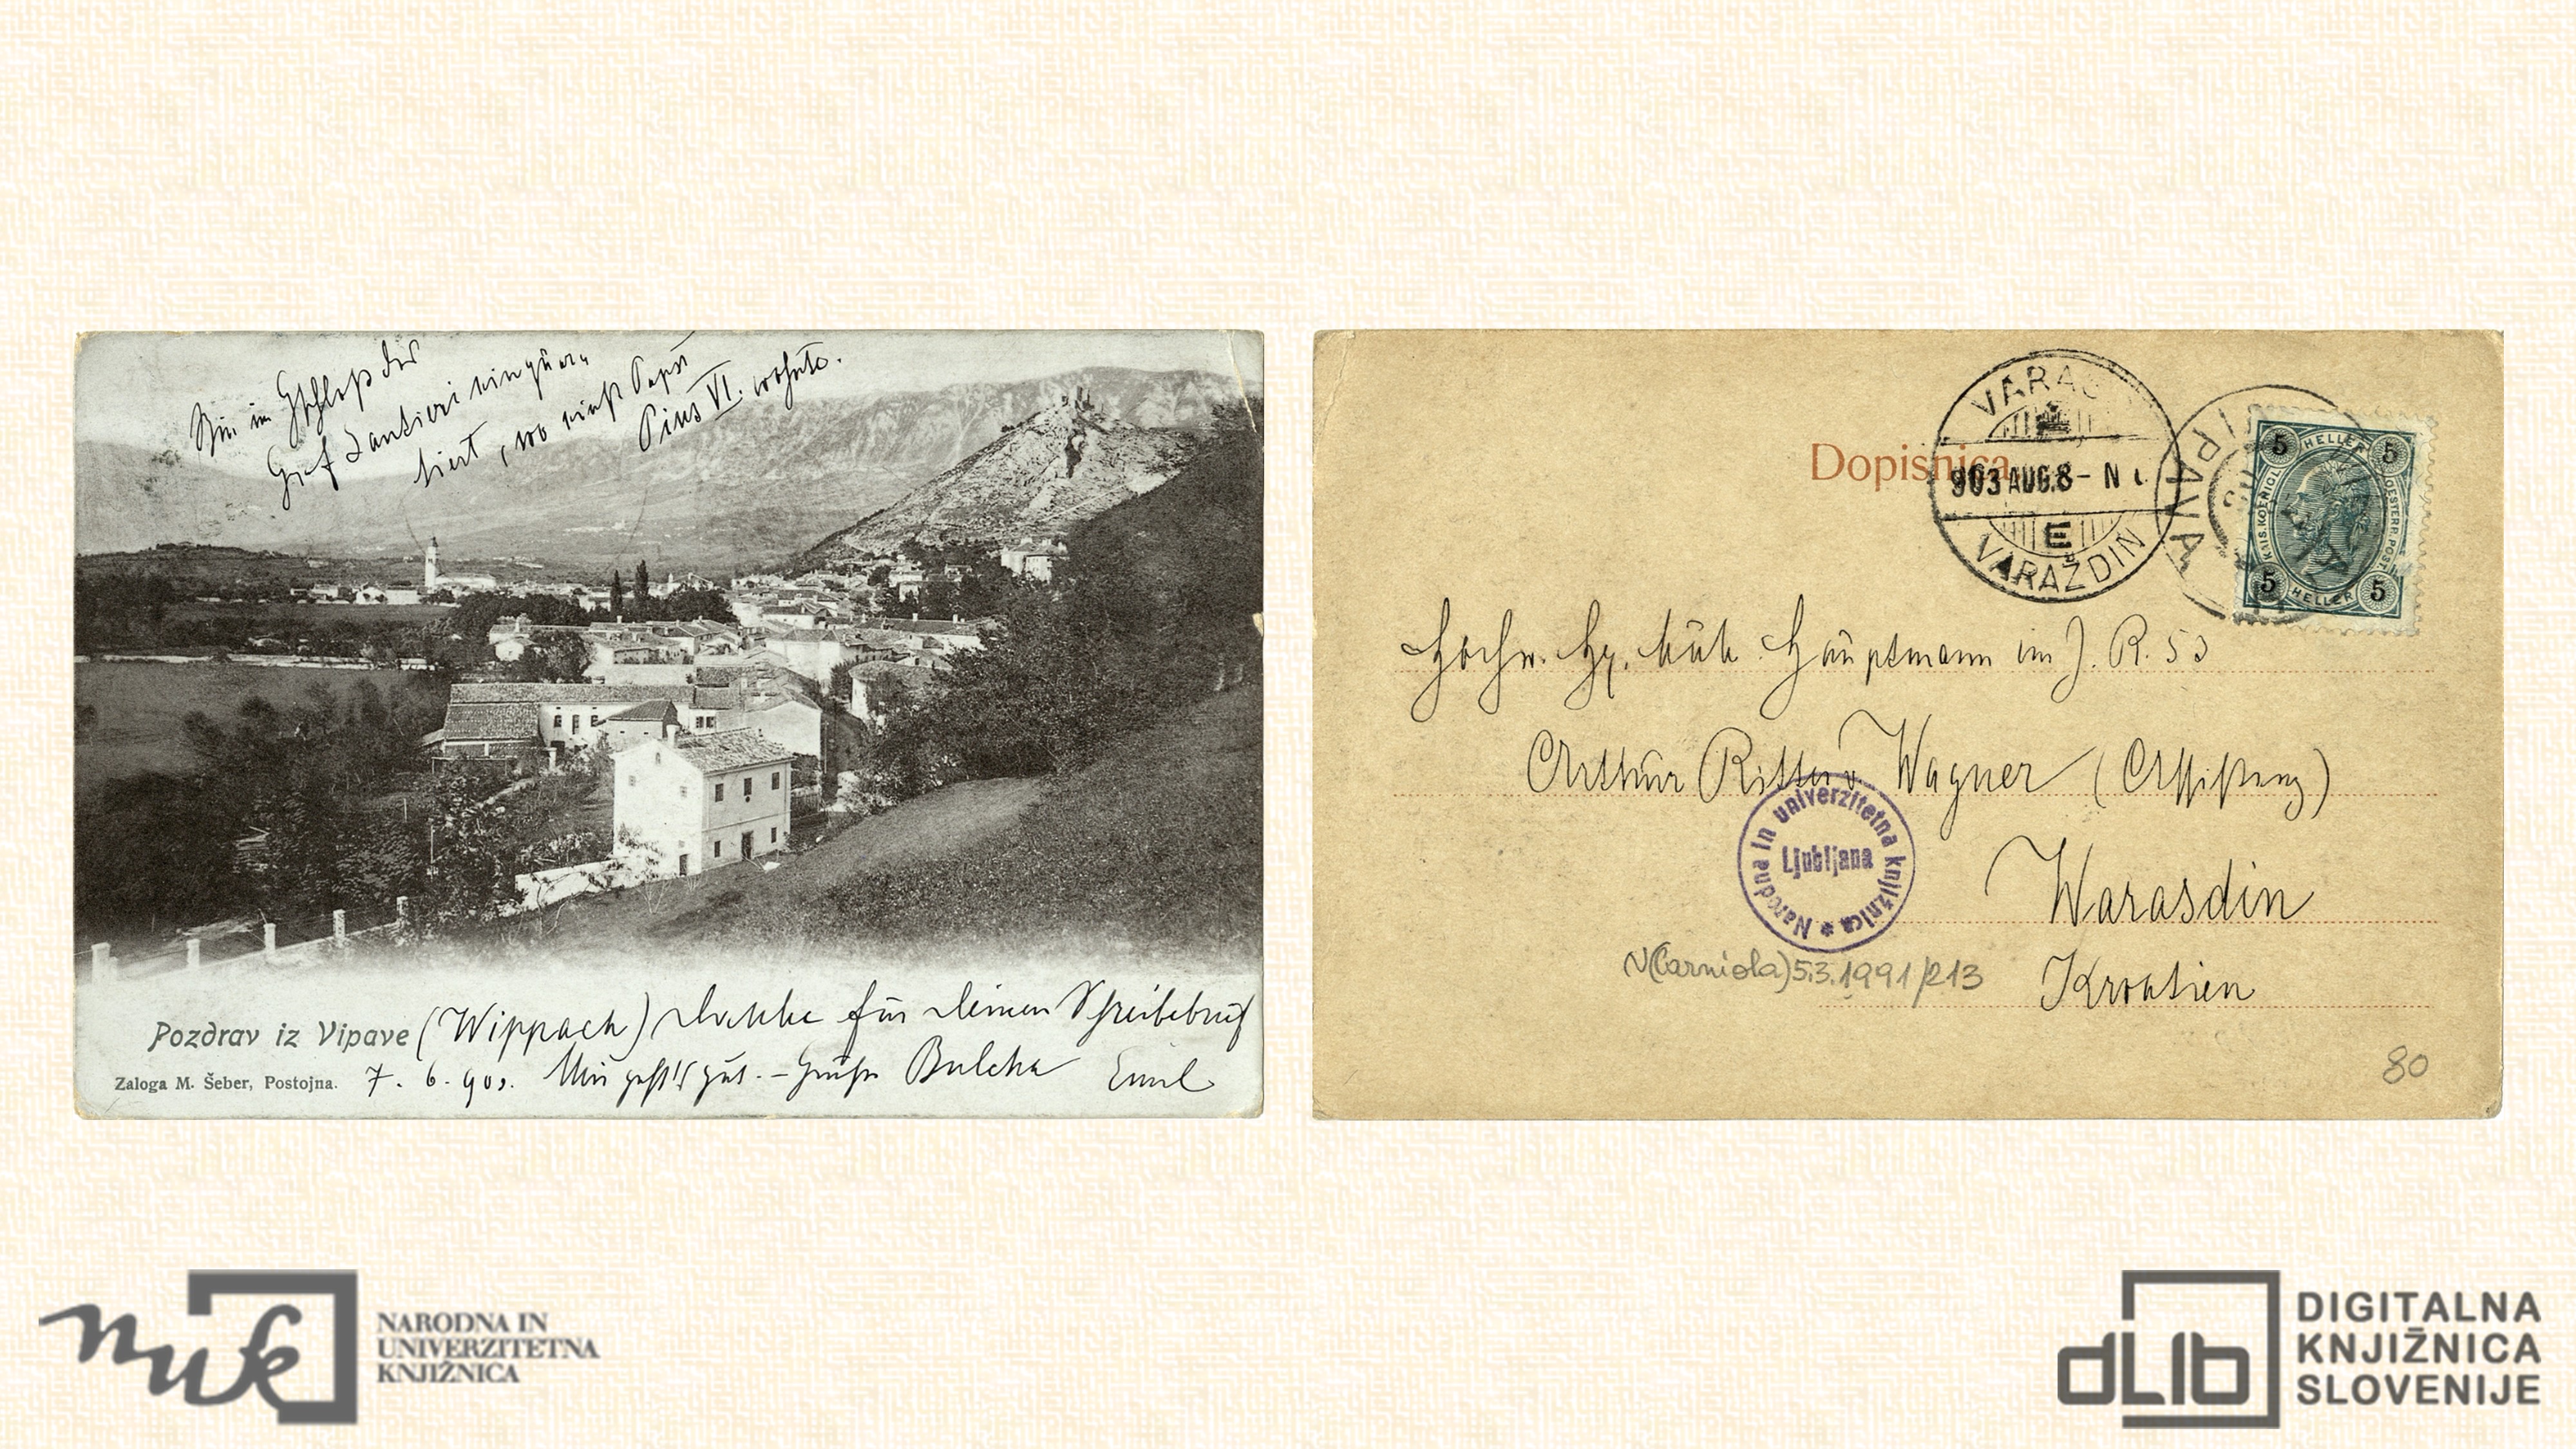 Bin im Schloß des
Graf Lantieri einquar-
tiert, wo einst Papst
Pius VI. wohnte.
Pozdrav iz Vipave (Wippach) Danke für Deinen
Zaloga M. Šeber, Postojna. 7. 6. 903. Mir geht's gut. – Emil
Dopisnica
VARAŽ
903 AUG. 8 - N
E
VARAŽDIN
VIPAVA
5 HELLER 5
KAIS. KOENIGL. OESTERR. POST.
5 HELLER 5
Hauptmann im J. R. 53
Arthur Ritter v. Wagner (Assistenz)
Warasdin
Kroatien
Narodna in univerzitetna knjižnica *
Ljubljana
N(Carniola)5.3.1991/213
80
nuk
NARODNA IN
UNIVERZITETNA
KNJIŽNICA
dLib
DIGITALNA
KNJIŽNICA
SLOVENIJE